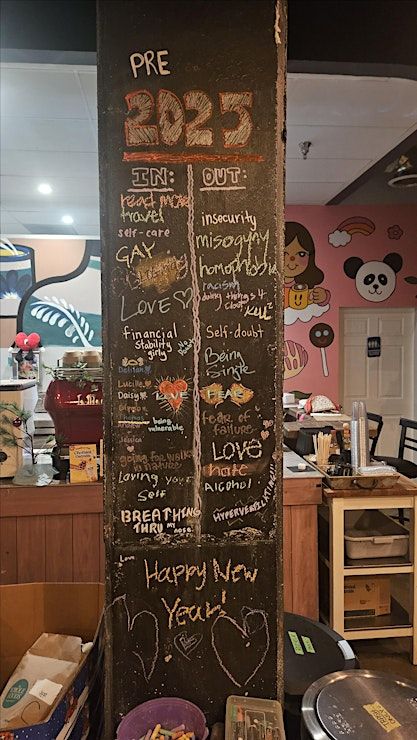 PRE
2025
IN:
read more
travel
self-care
GAY
LOVE
financial
stability
girly
Delilah
Lucille
Daisy
Thomas
being
vulnerable
Jessica
going for walks
in nature
Loving your
self
BREATHING
THRU my
nose.
OUT:
insecurity
misogyny
homophobia
racism
doing things 4
clout
Self-doubt
Being
Single
FEAR
fear of
failure
LOVE
hate
Alcohol
HYPERVENTILATING!!!
Love,
Happy New
Year!